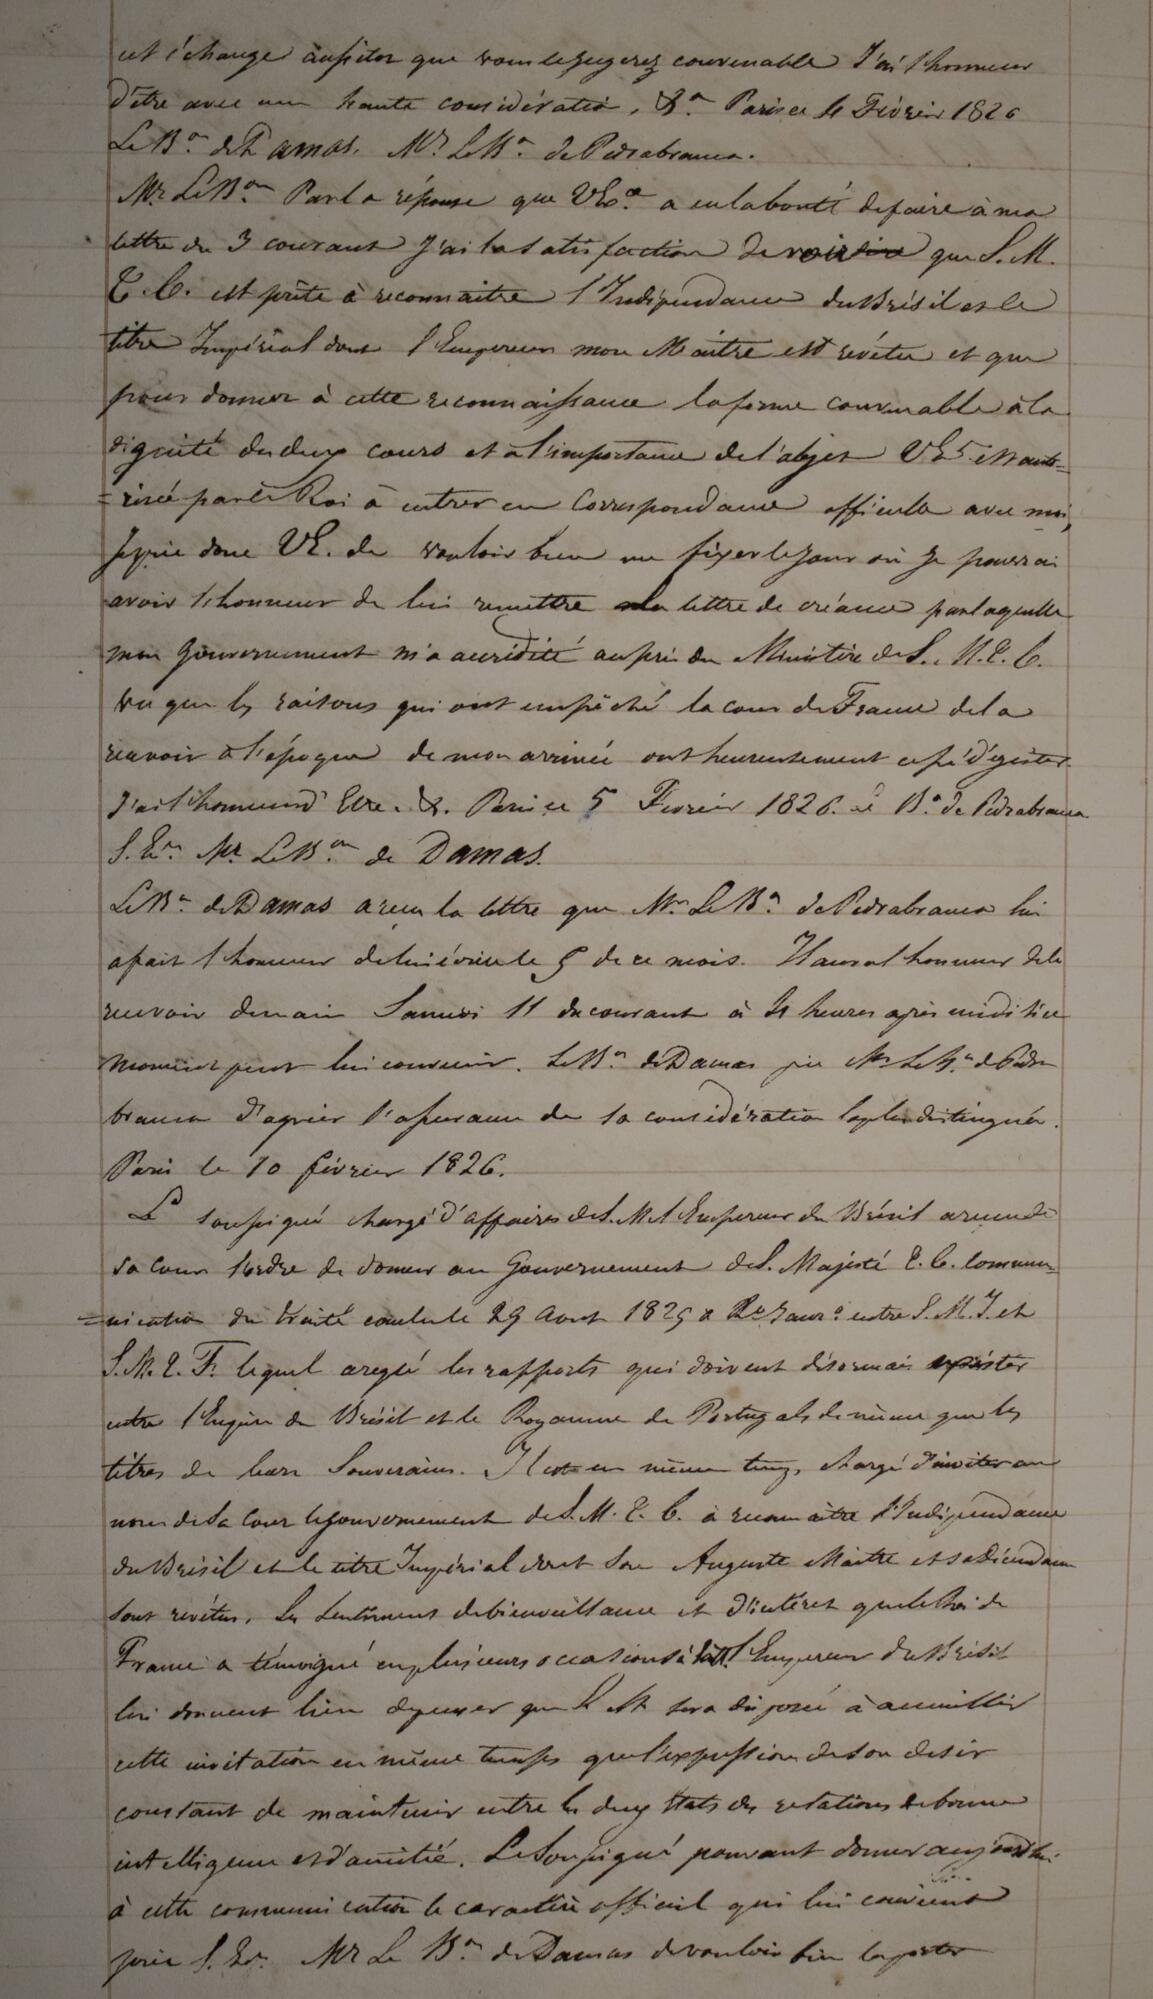 cet échange aussitot que vous le jugerez convenable J'ai l'honneur
d'être avec une haute considération, &ª. Paris ce 4 Février 1826
Le Bon de Damas. Mr Le Bn de Pedrabranca.
Mr Le Bon Par la réponse que V Exª a eu la bonté de faire à ma
lettre du 3 courant J'ai la satisfaction de voir que S. M.
T. C. est prête à reconnaitre l'Indépendance du Brésil et le
titre Impérial dont l'Empereur mon Maitre est revétu et que
pour donner à cette reconnaissance la forme convenable à la
dignité des deux cours et à l'importance de l'objet V E est auto=
=risée par le Roi à entrer en Correspondance officielle avec moi,
Je prie donc V E. de vouloir bien me fixer le jour où Je pourrai
avoir l'honneur de lui remettre la lettre de créance par laquelle
mon Gouvernement m'a accrédité auprès du Ministère de S. M. T. C.
vu que les raisons qui ont empêché la cour de France de la
recevoir à l'époque de mon arrivée ont heureusement cessé d'exister
J'ai l'honneur d'Etre. &. Paris ce 5 Fevrier 1826. Le Bn de Pedrabranca
S. Exª. Mr Le Bon de Damas.
Le Bn de Damas a reçu la lettre que Mr Le Bn de Pedrabranca lui
a fait l'honneur de lui écrire le 5 de ce mois. Il aura l'honneur de le
recevoir demain Samedi 11 du courant à 4 heures après midi si ce
moment peut lui convenir. Le Bn de Damas prie Mr Le Bn de Pedra
branca d'agréer l'assurance de sa considération la plus distinguée.
Paris le 10 février 1826.
Le soussigné chargé d'affaires de S. M. l'Empereur du Brésil a reçu de
sa cour l'ordre de donner au Gouvernement de S. Majesté T. C. Commu=
=nication du traité conclu le 29 Aout 1825 a Rº Janrº entre S. M. I. et
S. M. T. F. lequel a reglé les rapports qui doivent désormais exister
entre l'Empire du Brésil et le Royaume de Portugal de même que les
titres de leurs Souverains. Il est en même temps chargé d'inviter au
nom de Sa Cour le gouvernement de S. M. T. C. à reconnaitre l'Indépendance
du Brésil et le titre Impérial dont Son Auguste Maitre et sa Déscendance
sont revétus. Les sentiments de bienveillance et d'intéret que le Roi de
France a témoigné en plusieurs occasions à l'Empereur du Brésil
lui donnent lieu de penser que S. M. sera disposé à accueillir
cette invitation en même temps que l'expression de son desir
constant de maintenir entre les deux Etats des relations de bonne
intelligence et d'amitié. Le Soussigné pouvant donner aujourd'hui
à cette communication le caractère officiel qui lui convient
prie S. Exª. Mr Le Bon de Damas de vouloir bien la porter